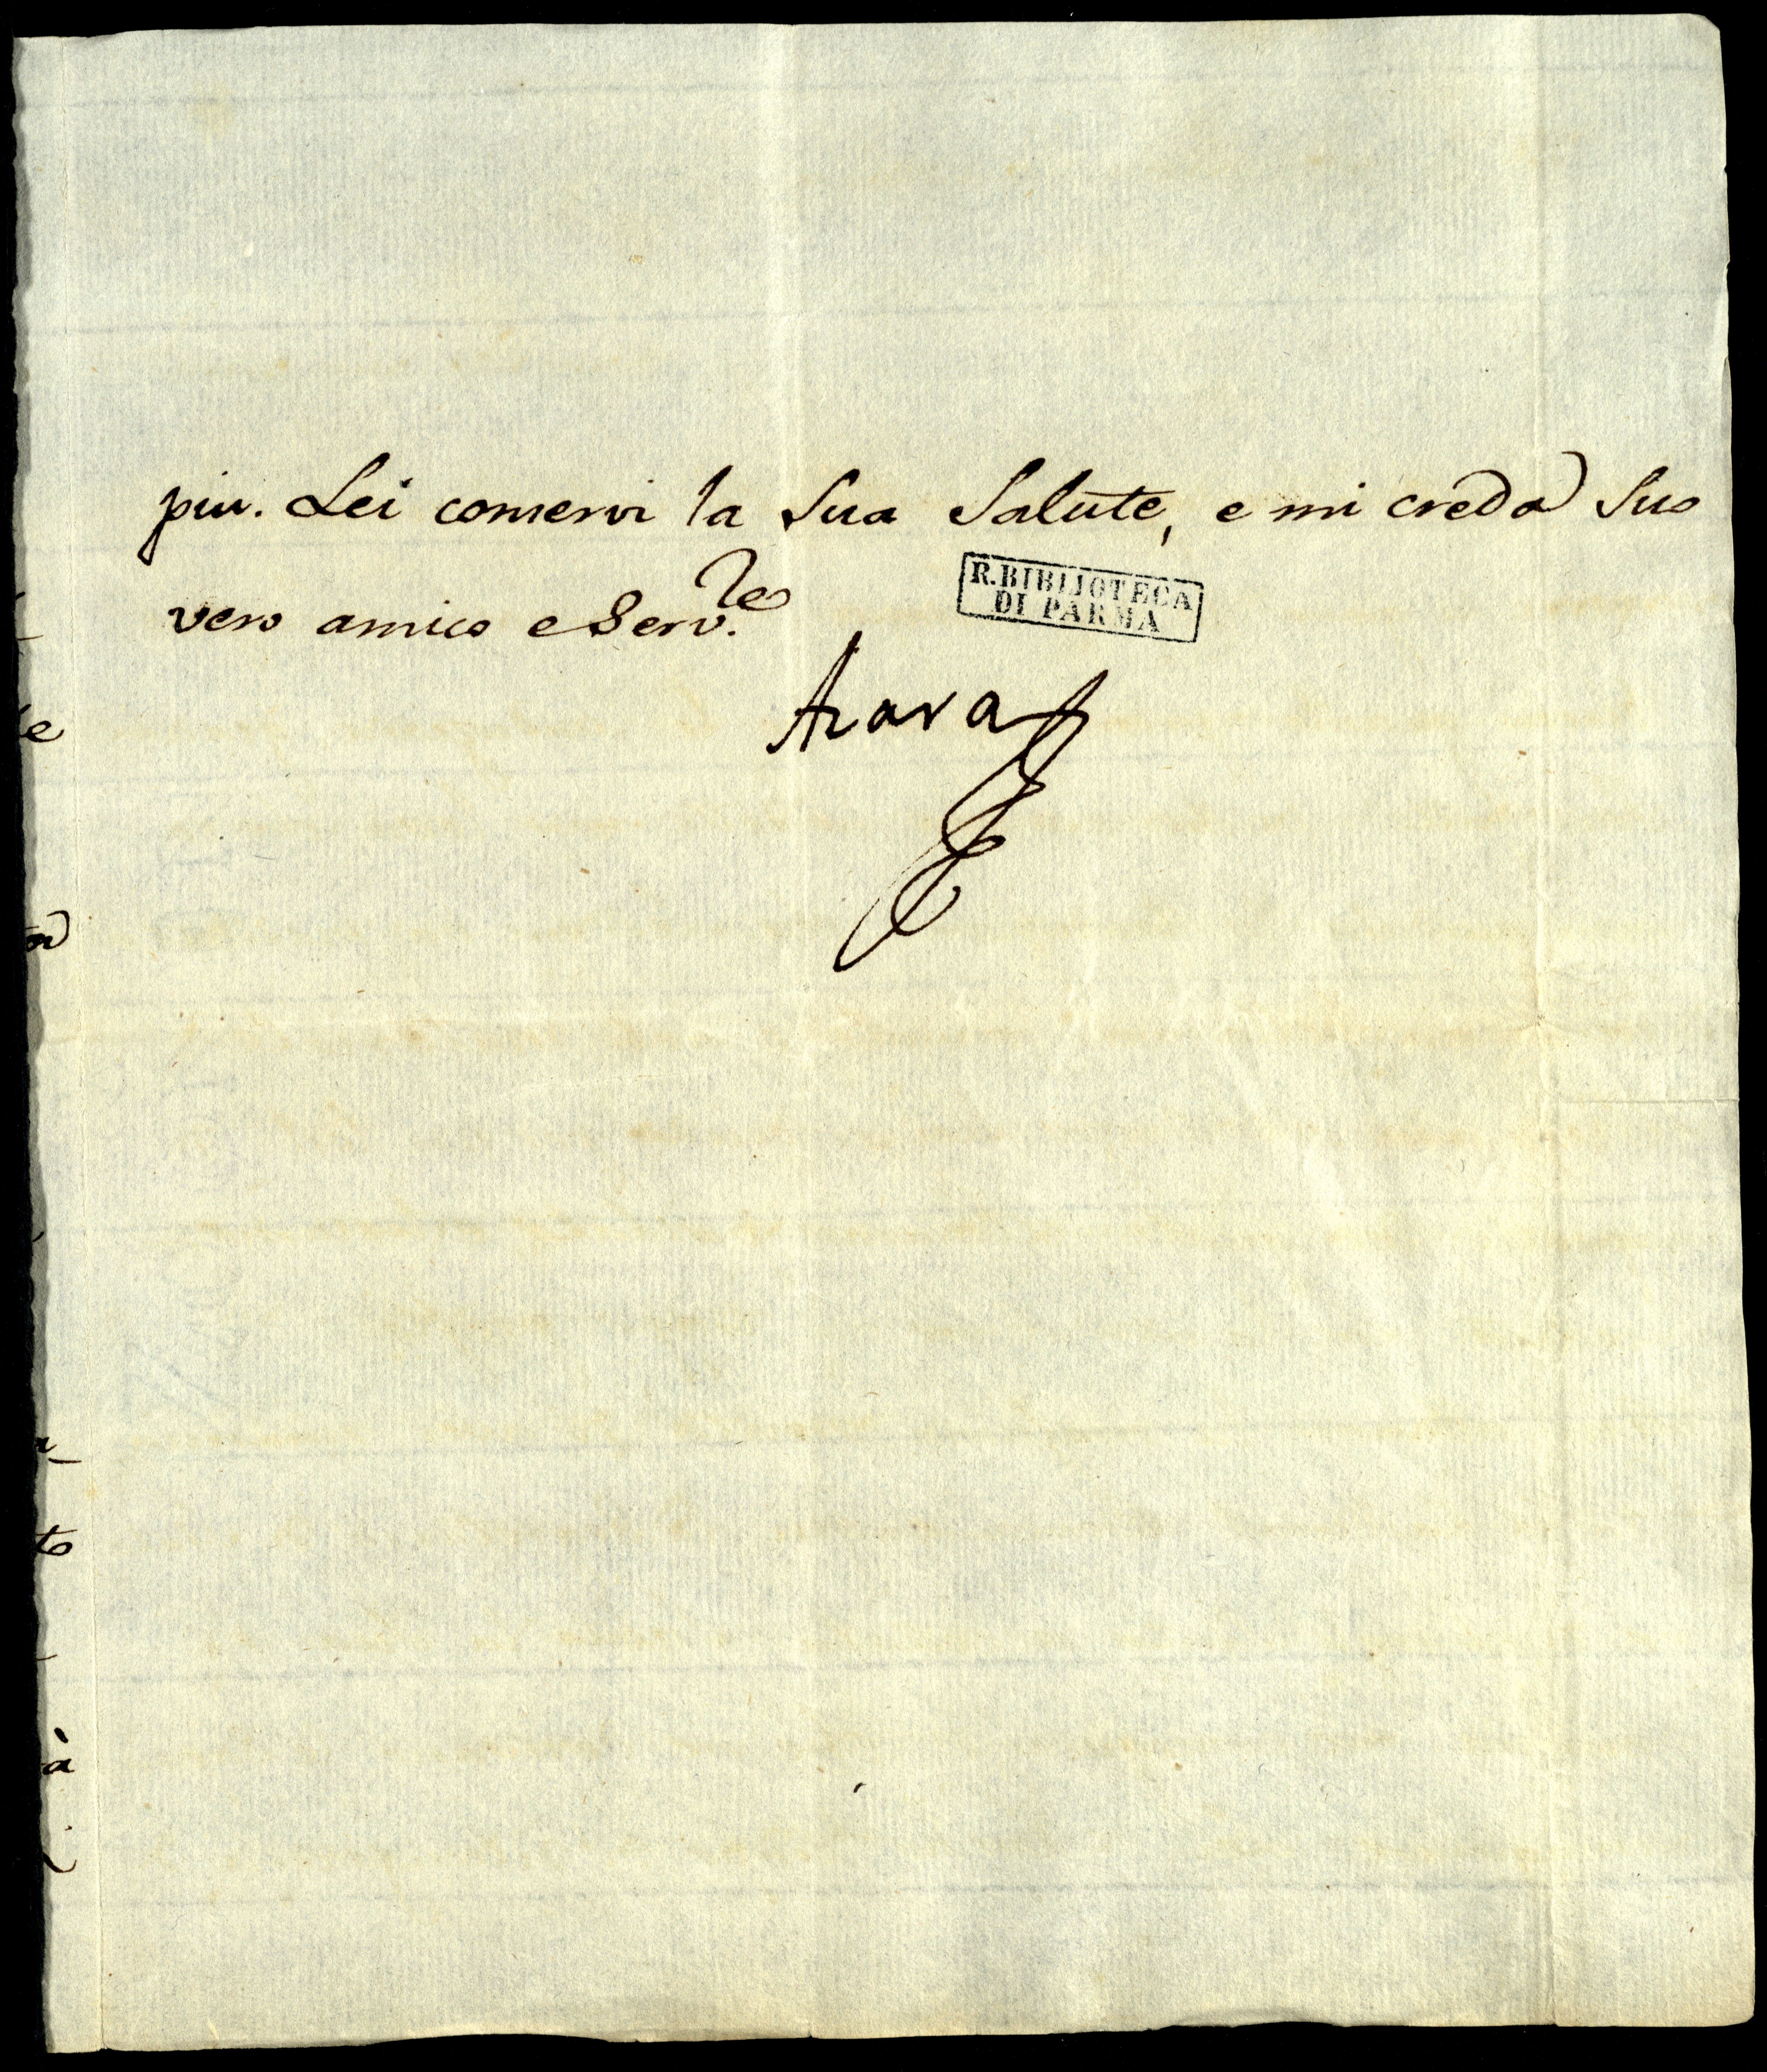 piu. Lei conservi la Sua Salute, e mi creda Suo
vero amico e Serv.re
R. BIBLIOTECA
DI PARMA
Azara
e
to
à